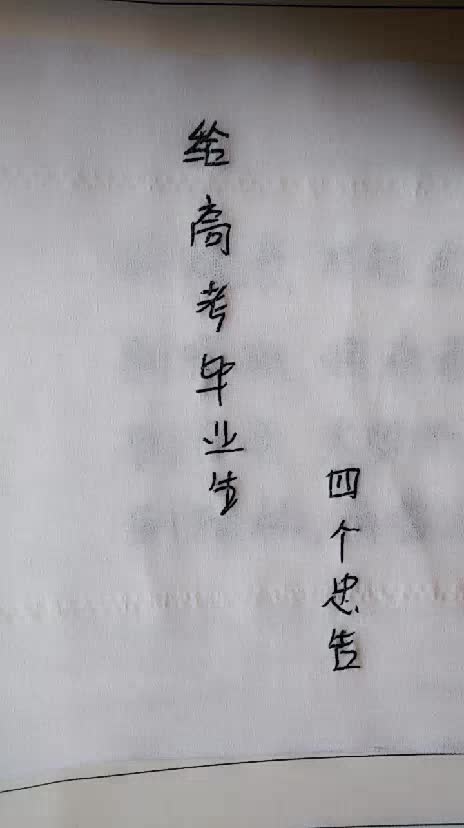 给高考毕业生
四个忠告